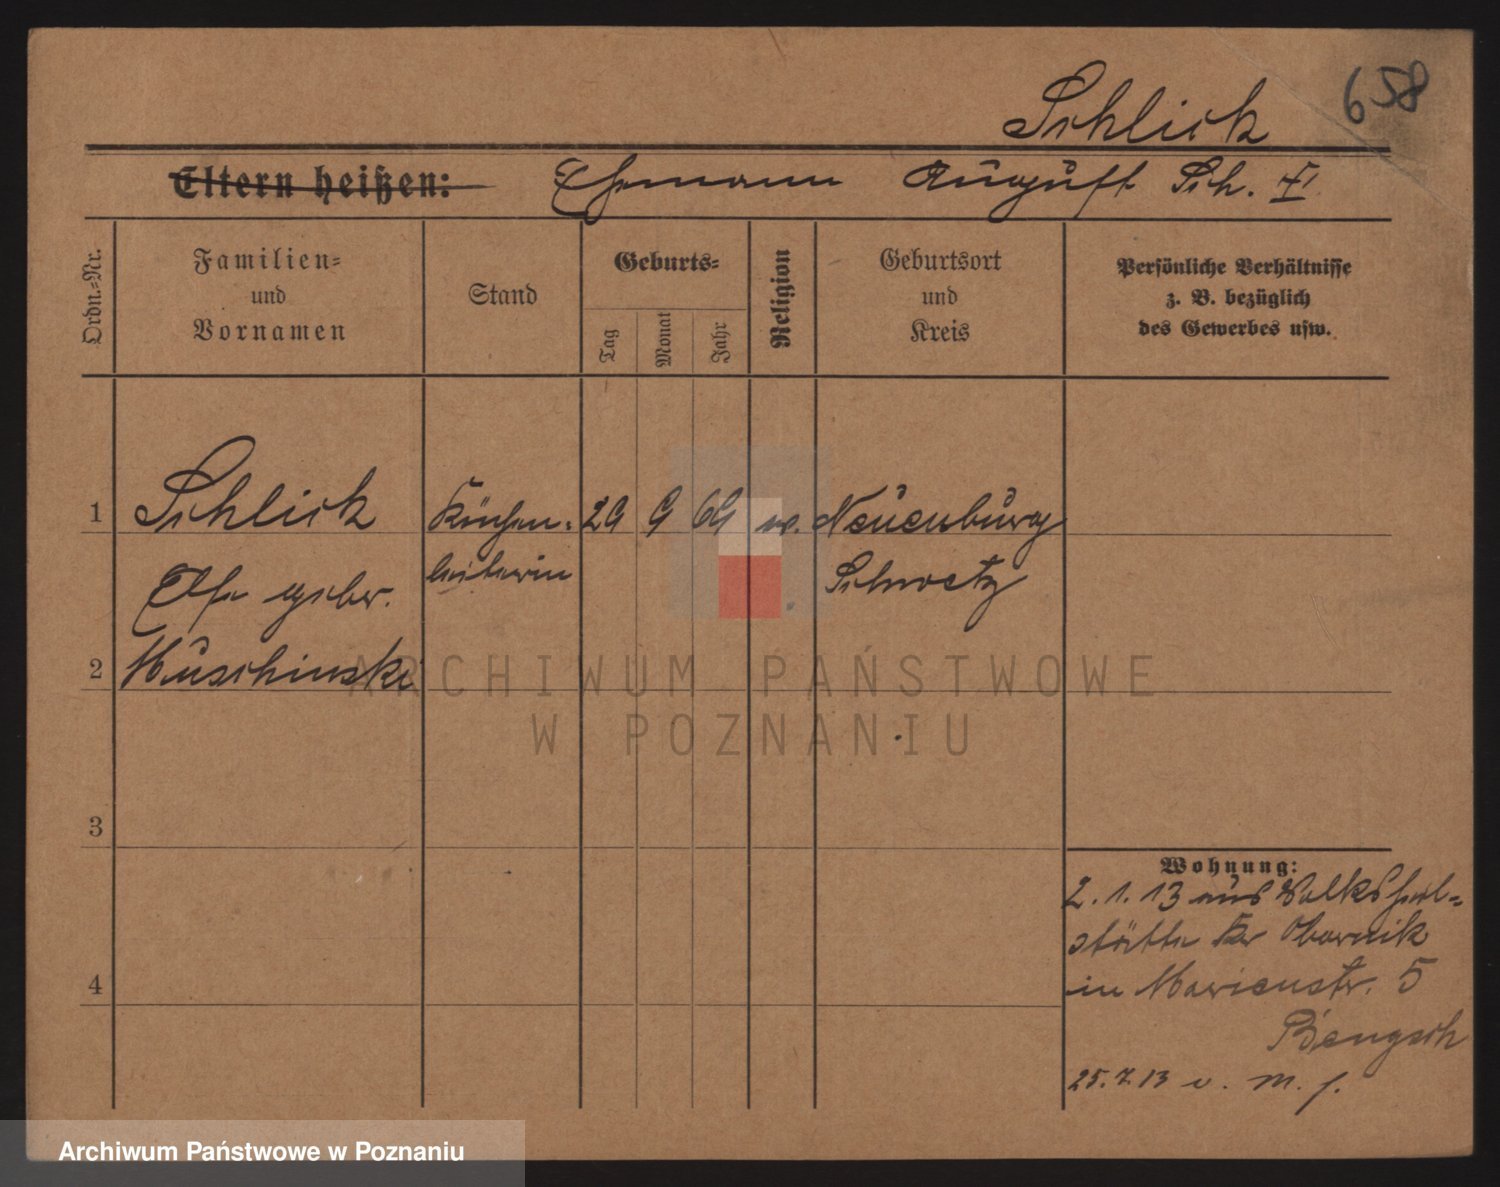 658
Schlick
Eltern heißen: Ehemann August Sch. II
Ordn.-Nr.
Familien-
und
Vornamen
Stand
Geburts-
Tag
Monat
Jahr
Religion
Geburtsort
und
Kreis
Persönliche Verhältnisse
z. B. bezüglich
des Gewerbes usw.
1 Schlick Küchen- 29 9 69 Neuenburg
geber. leiterin Schwetz
2 Muschinski
3
4
Wohnung:
2. 1. 13 aus Volksheil-
stätte Kr Obornik
in Marienstr. 5
Bengsch
25. 7. 13
ARCHIWUM PAŃSTWOWE
W POZNANIU
Archiwum Państwowe w Poznaniu